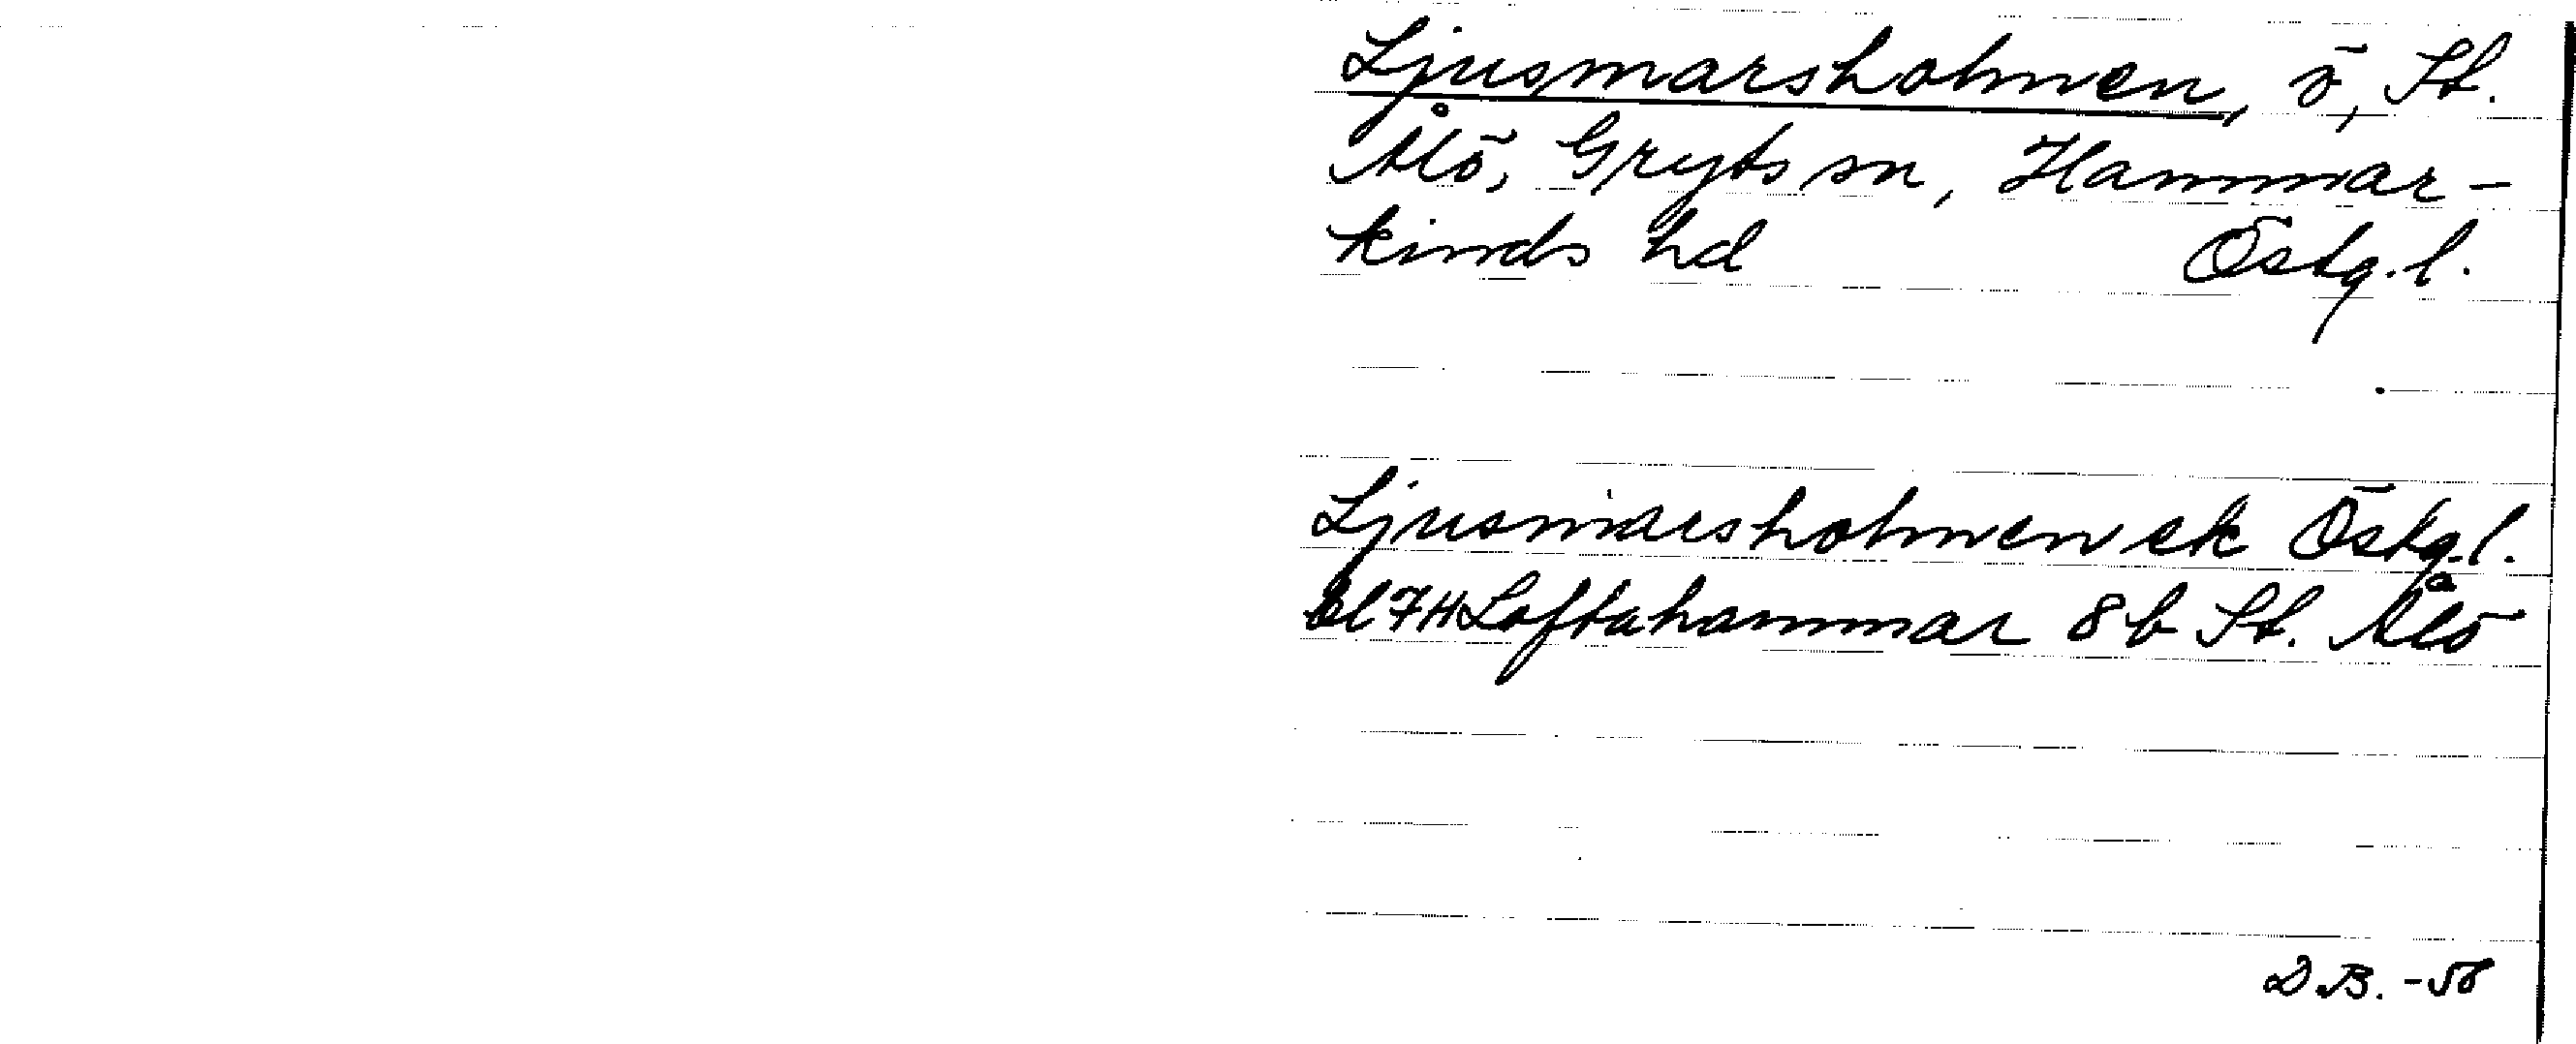 Ljusmarsholmen, ö, St.
Ålö, Gryts sn, Hammar-
kinds hd Östg.l.
Ljusmarsholmen ek Östg.l.
bl 7H Loftahammar 8b St. Ålö
D.B. -58